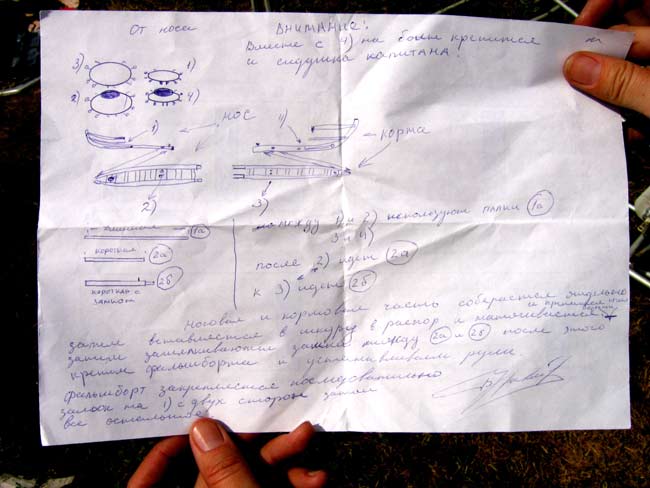 От носа
ВНИМАНИЕ!
Вместе с 4) на болт крепится
и сидушка капитана!
3)
1)
2)
4)
НОС
1)
4)
КОРМА
2)
3)
между 1 и 2) используют планки 1а
3 и 4)
длинная
1а
после 2) идет 2а
короткая
2а
к 3) идет 2б
короткая с
замком
2б
Носовая и кормовая часть соберается отдельно
затем вставляется в шкуру в распор и натягивается
затем защелкивающие замки между 2а и 2б после этого
крепим фальшборта и устанавливаем рули
фальшборт закрепляется последовательно
на 1) с двух сторон затем
все остальное